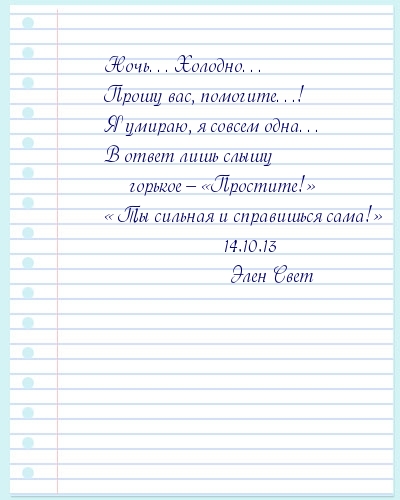 Ночь... Холодно...
Прошу вас, помогите...!
Я умираю, я совсем одна...
В ответ лишь слышу
горькое – «Простите!»
« Ты сильная и справишься сама!»
14.10.13
Элен Свет